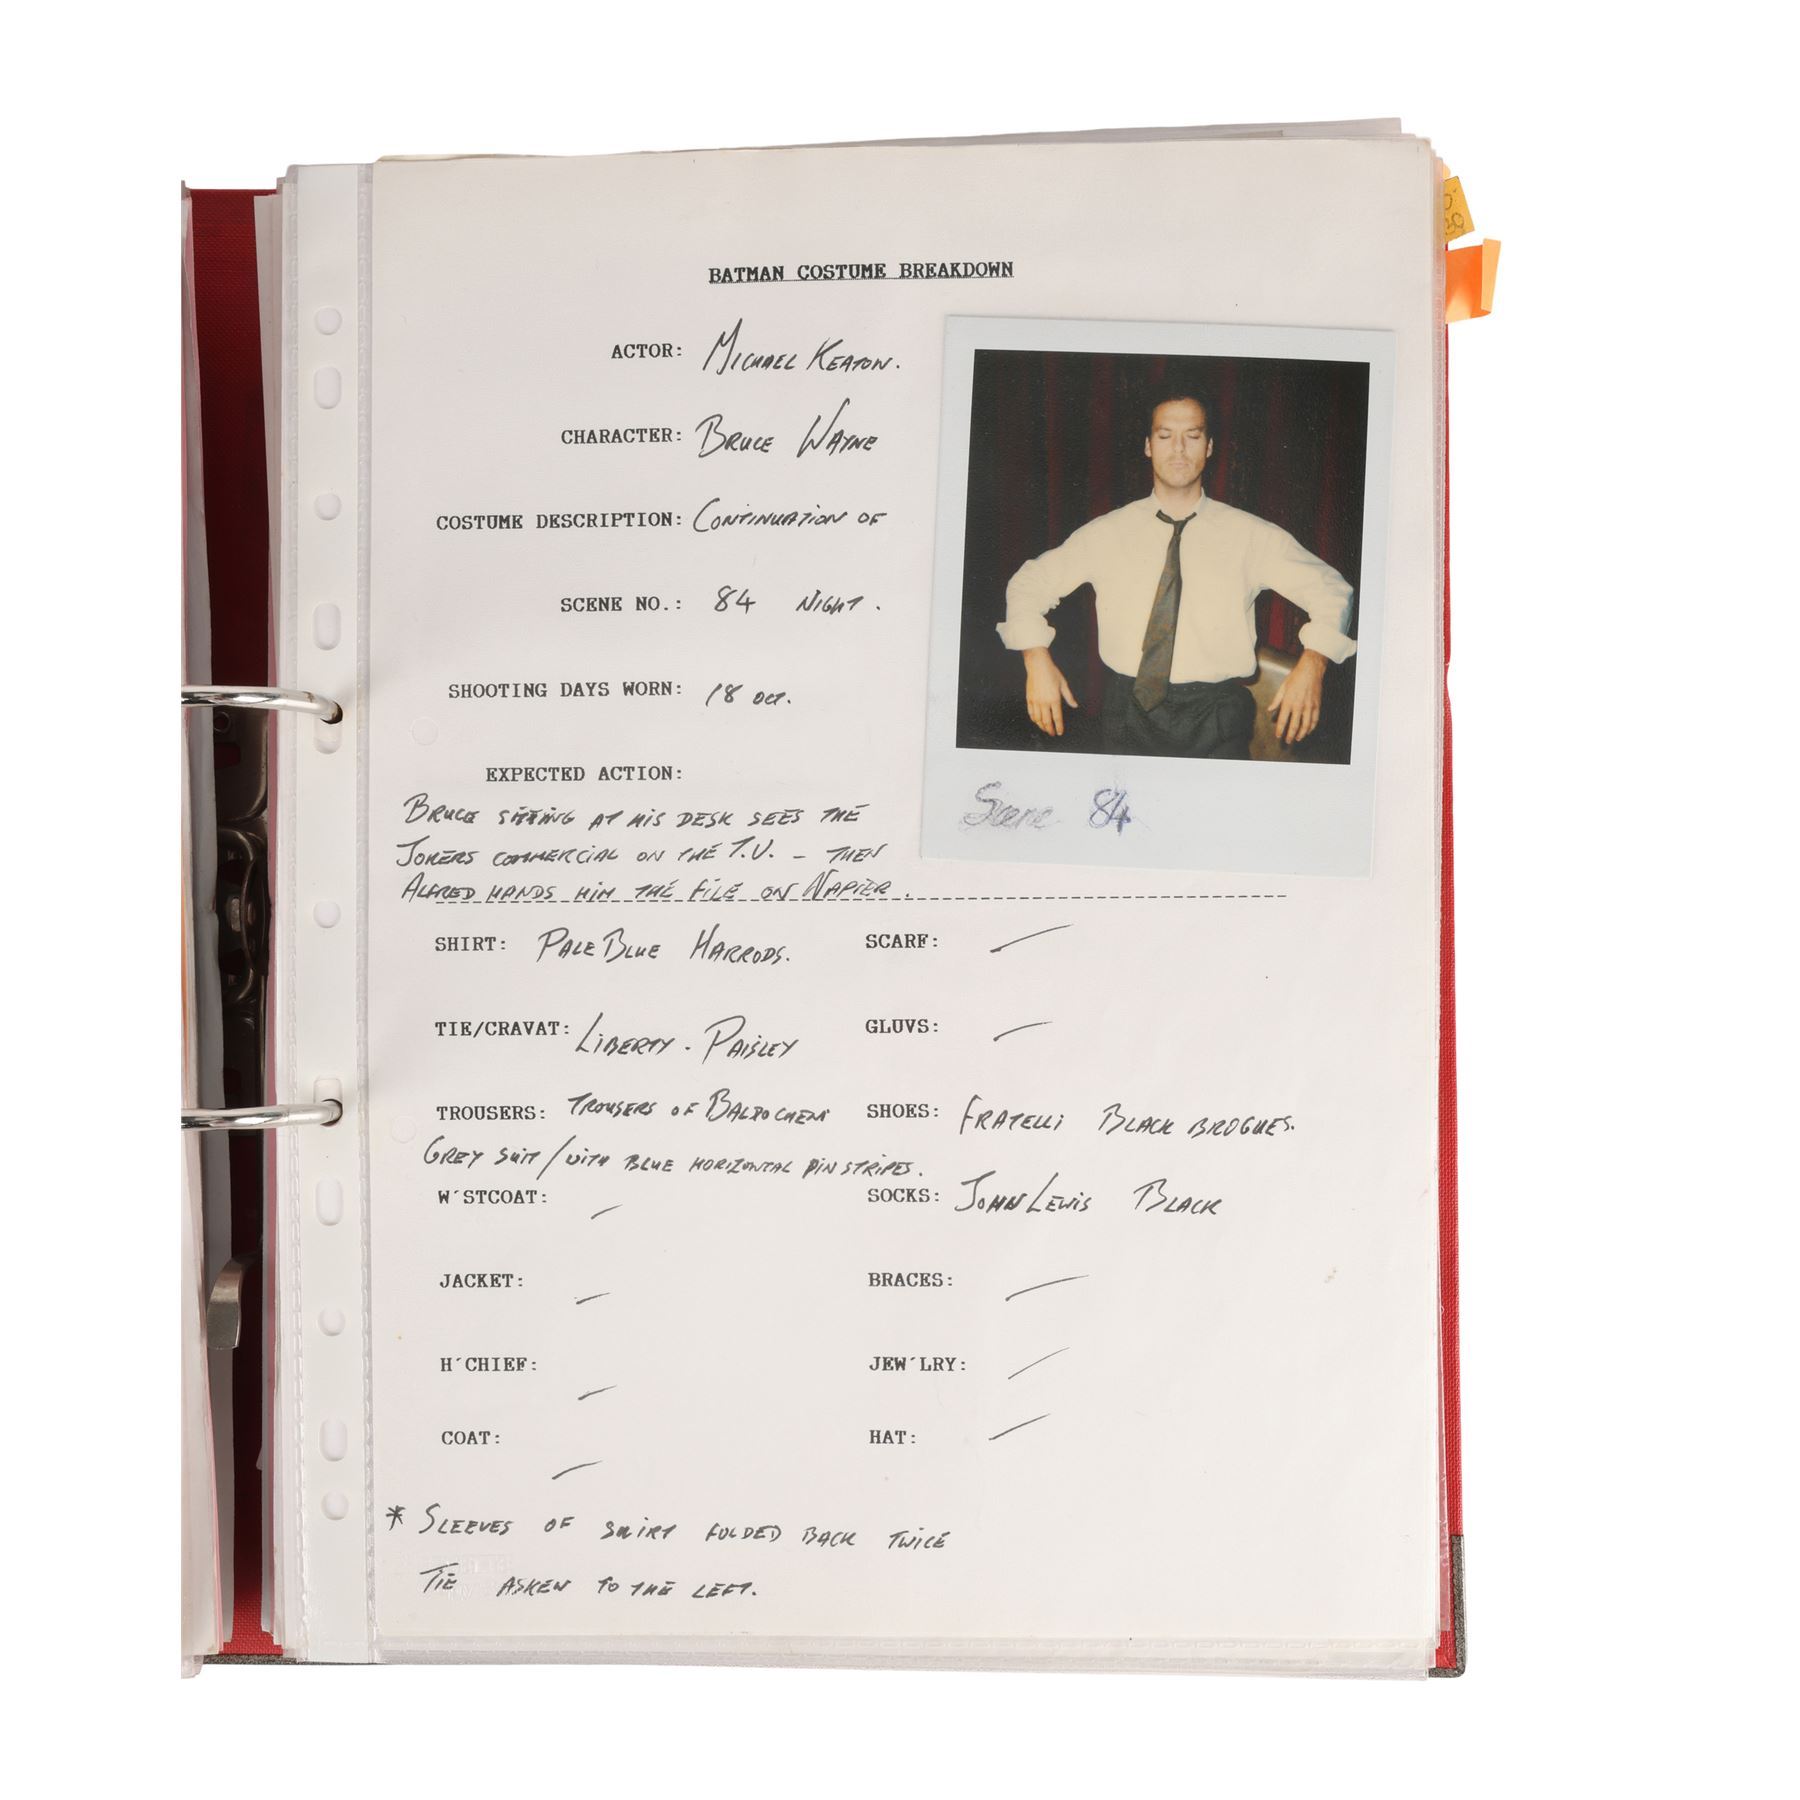 BATMAN COSTUME BREAKDOWN
ACTOR: MICHAEL KEATON.
CHARACTER: BRUCE WAYNE
COSTUME DESCRIPTION: CONTINUATION OF
SCENE NO.: 84 NIGHT.
SHOOTING DAYS WORN: 18 OCT.
EXPECTED ACTION:
BRUCE SITTING AT HIS DESK SEES THE
JOKERS COMMERCIAL ON THE T.V. - THEN
ALFRED HANDS HIM THE FILE ON NAPIER.
Scene 84
SHIRT: PALE BLUE HARRODS.
SCARF: —
TIE/CRAVAT: LIBERTY - PAISLEY
GLUVS: —
TROUSERS: TROUSERS OF
GREY SUIT/WITH BLUE HORIZONTAL PINSTRIPES.
SHOES: FRATELLI BLACK BROGUES.
W'STCOAT: —
SOCKS: JOHN LEWIS BLACK
JACKET: —
BRACES: —
H'CHIEF: —
JEW'LRY: —
COAT: —
HAT: —
* SLEEVES OF SHIRT FOLDED BACK TWICE
TIE ASKEW TO THE LEFT.